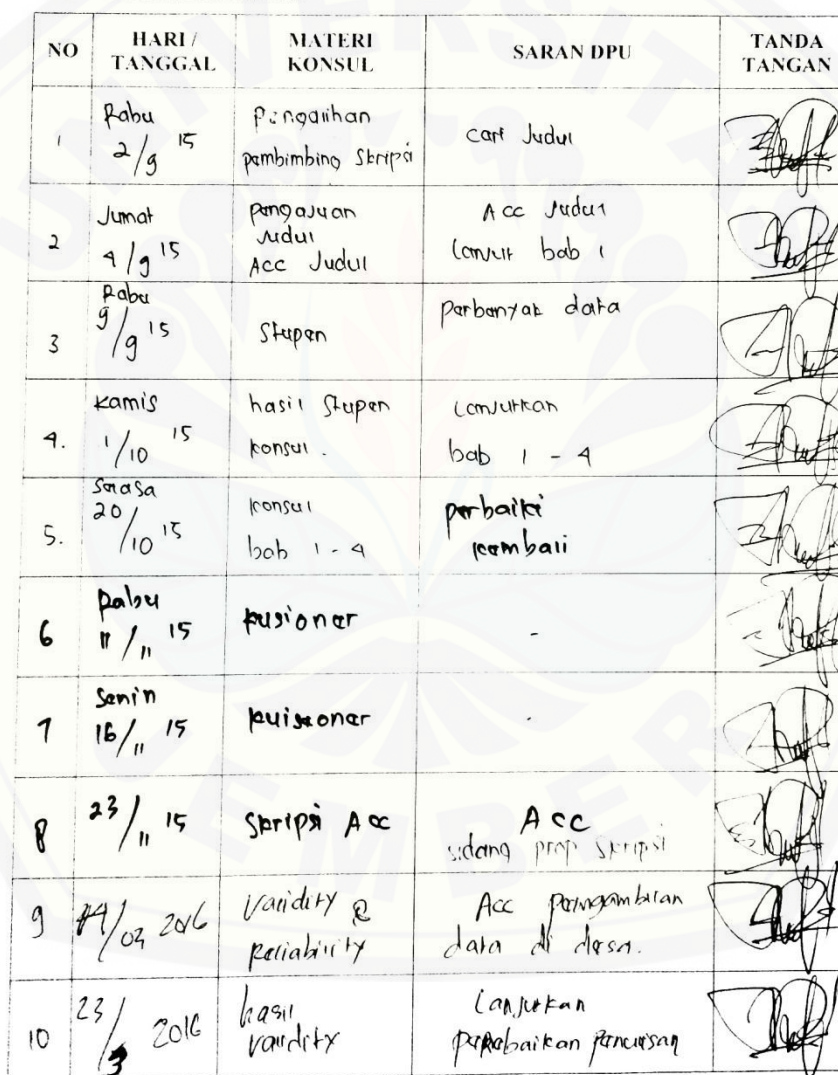 NO HARI / TANGGAL MATERI KONSUL SARAN DPU TANDA TANGAN
1 Rabu 2/9 15 Pengalihan pembimbing Skripsi cari Judul
2 Jumat 4/9 15 pengajuan Judul Acc Judul Acc Judul Lanjut bab 1
3 Rabu 9/9 15 Stupen perbanyak data
4. Kamis 1/10 15 hasil Stupen konsul. Lanjutkan bab 1 - 4
5. Selasa 20/10 15 konsul bab 1 - 4 perbaiki kembali
6 Rabu 11/11 15 kusioner -
7 Senin 16/11 15 kuisoner -
8 23/11 15 Skripsi Acc Acc sidang prop Skripsi
9 2016 Validity & Reliability Acc pengambilan data di desa.
10 23/3 2016 hasil validity Lanjutkan penulisan
UNIVERSITAS JEMBER